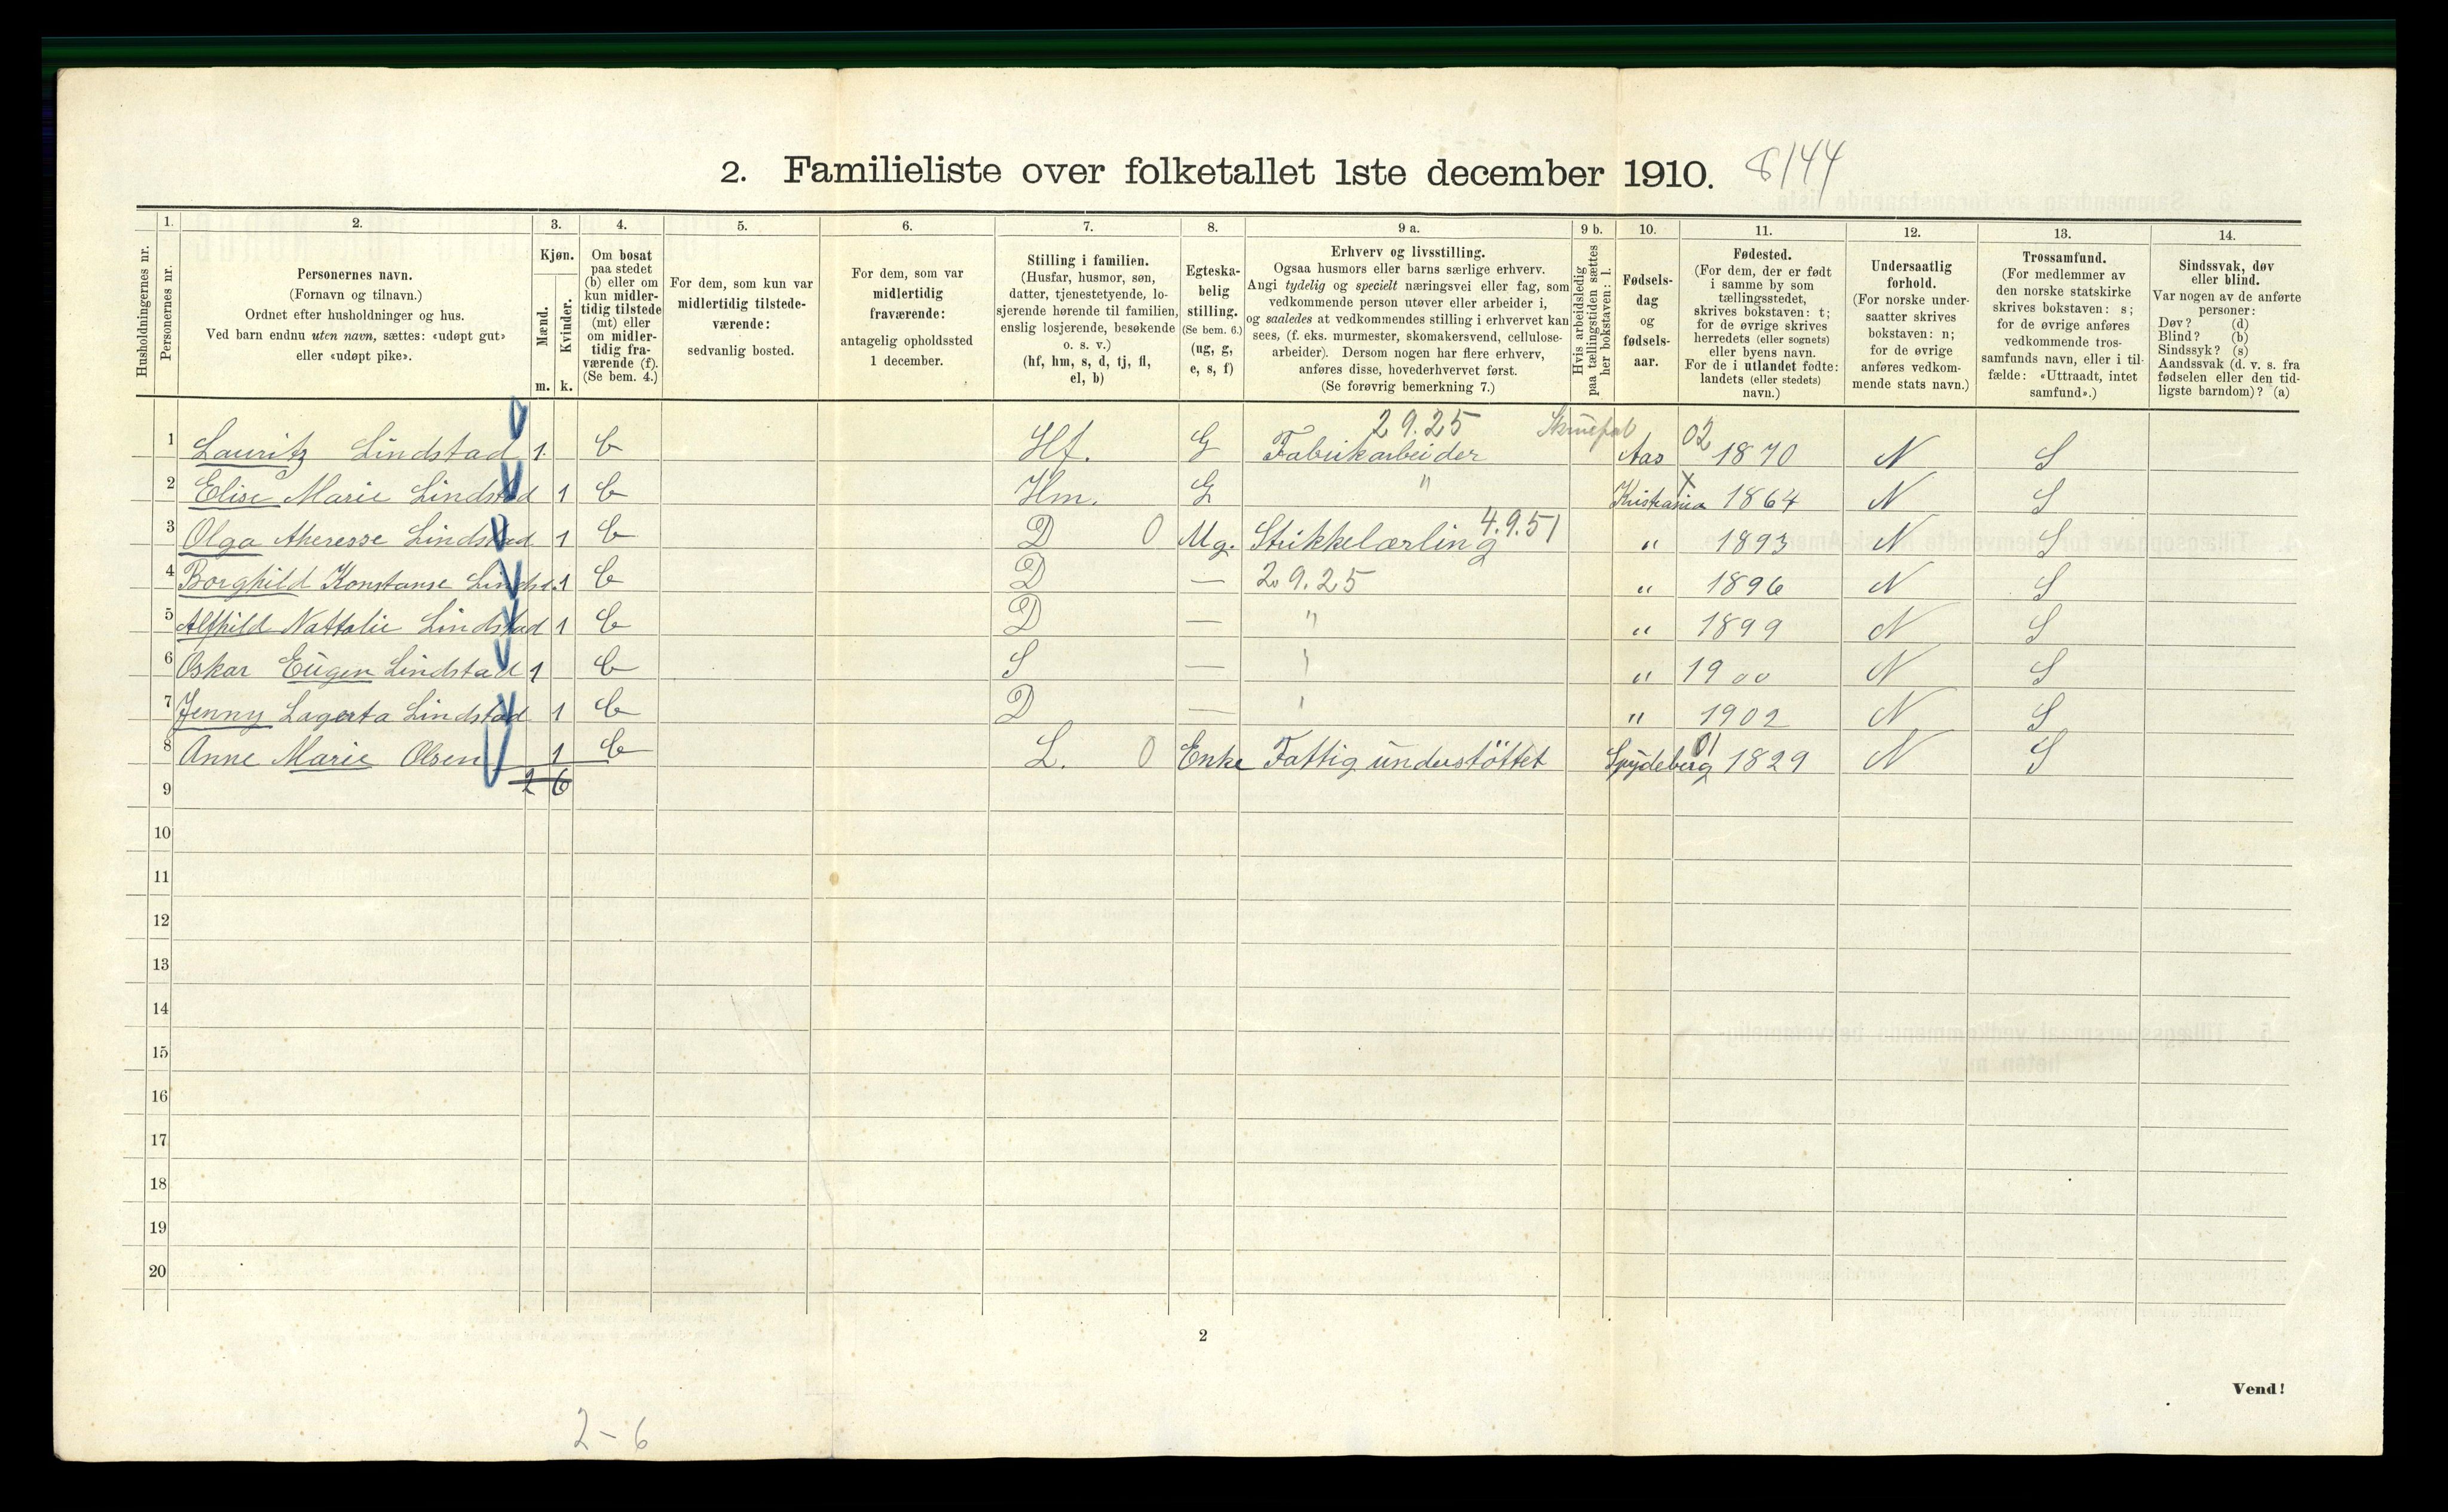 2. Familieliste over folketallet 1ste december 1910. 8144
Husholdningernes nr.
1.
Personernes nr.
2.
Personernes navn.
(Fornavn og tilnavn.)
Ordnet efter husholdninger og hus.
Ved barn endnu uten navn, sættes: «udøpt gut»
eller «udøpt pike».
3.
Kjøn.
Mænd.
m.
Kvinder.
k.
4.
Om bosat
paa stedet
(b) eller om
kun midler-
tidig tilstede
(mt) eller
om midler-
tidig fra-
værende (f).
(Se bem. 4.)
5.
For dem, som kun var
midlertidig tilstede-
værende:
sedvanlig bosted.
6.
For dem, som var
midlertidig
fraværende:
antagelig opholdssted
1 december.
7.
Stilling i familien.
(Husfar, husmor, søn,
datter, tjenestetyende, lo-
sjerende hørende til familien,
enslig losjerende, besøkende
o. s. v.)
(hf, hm, s, d, tj, fl,
el, b)
8.
Egteska-
belig
stilling.
(Se bem. 6.)
(ug, g,
e, s, f)
9 a.
Erhverv og livsstilling.
Ogsaa husmors eller barns særlige erhverv.
Angi tydelig og specielt næringsvei eller fag, som
vedkommende person utøver eller arbeider i,
og saaledes at vedkommendes stilling i erhvervet kan
sees, (f. eks. murmester, skomakersvend, cellulose-
arbeider). Dersom nogen har flere erhverv,
anføres disse, hovederhvervet først.
(Se forøvrig bemerkning 7.)
9 b.
Hvis arbeidsledig
paa tællingstiden sættes
her bokstaven: l.
10.
Fødsels-
dag
og
fødsels-
aar.
11.
Fødested.
(For dem, der er født
i samme by som
tællingsstedet,
skrives bokstaven: t;
for de øvrige skrives
herredets (eller sognets)
eller byens navn.
For de i utlandet fødte:
landets (eller stedets)
navn.)
12.
Undersaatlig
forhold.
(For norske under-
saatter skrives
bokstaven: n;
for de øvrige
anføres vedkom-
mende stats navn.)
13.
Trossamfund.
(For medlemmer av
den norske statskirke
skrives bokstaven: s;
for de øvrige anføres
vedkommende tros-
samfunds navn, eller i til-
fælde: «Uttraadt, intet
samfund».)
14.
Sindssvak, døv
eller blind.
Var nogen av de anførte
personer:
Døv? (d)
Blind? (b)
Sindssyk? (s)
Aandssvak (d. v. s. fra
fødselen eller den tid-
ligste barndom)? (a)
29.25 02
1 Lauritz Lindstad 1 b Hf. G Fabrikarbeider Aas 1870 N S
2 Elise Marie Lindstad 1 b Hm. G " Kristiania X 1864 N S
4.9.51
3 Olga Theresse Lindstad 1 b D 0 Ug. Strikkelærling " 1893 N S
4 Borghild Konstanse Lindst. 1 b D — 29.25 " 1896 N S
5 Alfhild Nattalie Lindstad 1 b D — " " 1899 N S
6 Oskar Eugen Lindstad 1 b S — " " 1900 N S
7 Jenny Lagerta Lindstad 1 b D — " " 1902 N S
01
8 Anne Marie Olsen 1 b L. 0 Enke Fattig understöttet Spydeberg 1829 N S
2 6
9
10
11
12
13
14
15
16
17
18
19
20
2
Vend!
2-6